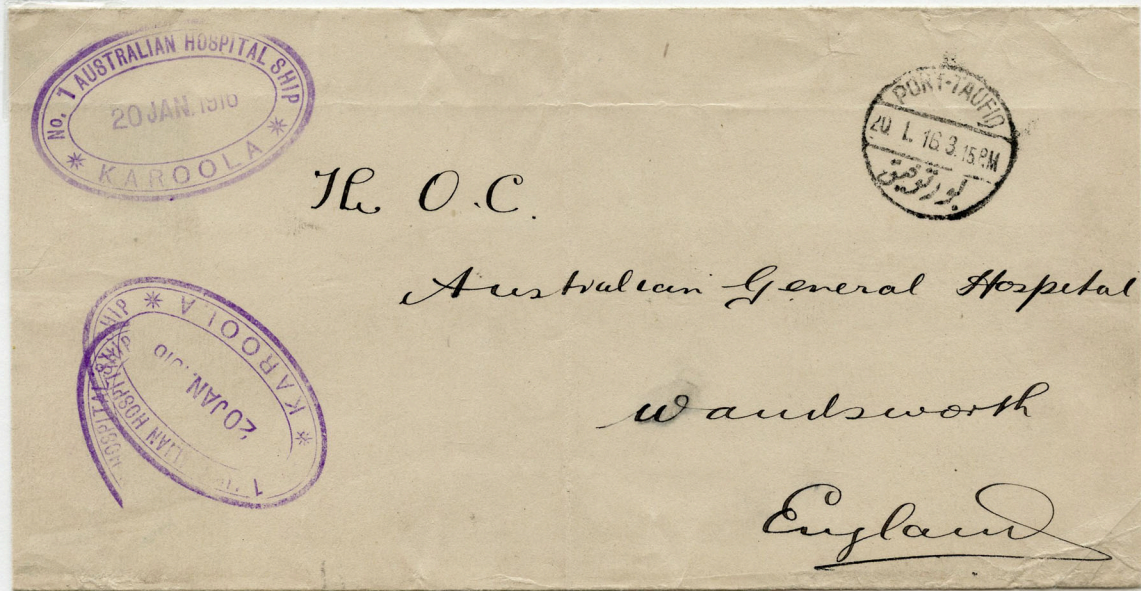 No. 1 AUSTRALIAN HOSPITAL SHIP
20 JAN. 1916
KAROOLA
PORT-TAUFIQ
20 . I . 16 3.15 P.M
بور توفيق
The O.C.
Australian General Hospital
Wandsworth
England
KAROOLA
20 JAN. 1916
1 HOSPITAL SHIP
HOSPITAL SHIP